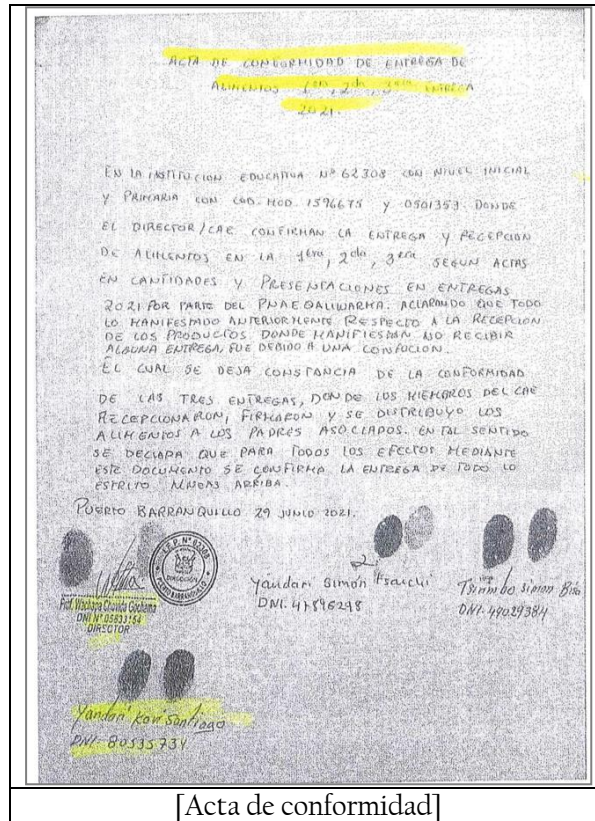 ACTA DE CONFORMIDAD DE ENTREGA DE
ALIMENTOS 1era, 2da, 3era ENTREGA
2021.
EN LA INSTITUCION EDUCATIVA Nº 62308 CON NIVEL INICIAL
Y PRIMARIA CON COD. MOD. 1596675 Y 0501353. DONDE
EL DIRECTOR/CAE CONFIRMAN LA ENTREGA Y RECEPCION
DE ALIMENTOS EN LA 1era, 2da, 3era SEGUN ACTAS
EN CANTIDADES Y PRESENTACIONES EN ENTREGAS
2021 POR PARTE DEL PNAE QALIWARMA. ACLARANDO QUE TODO
LO MANIFESTADO ANTERIORMENTE RESPECTO A LA RECEPCION
DE LOS PRODUCTOS. DONDE MANIFIESTAN NO RECIBIR
ALGUNA ENTREGA, FUE DEBIDO A UNA CONFUCION.
EL CUAL SE DEJA CONSTANCIA DE LA CONFORMIDAD
DE LAS TRES ENTREGAS, DONDE LOS MIEMBROS DEL CAE
RECEPCIONARON, FIRMARON Y SE DISTRIBUYO LOS
ALIMENTOS A LOS PADRES ASOCIADOS. EN TAL SENTIDO
SE DECLARA QUE PARA TODOS LOS EFECTOS MEDIANTE
ESTE DOCUMENTO SE CONFIRMA LA ENTREGA DE TODO LO
ESCRITO LINEAS ARRIBA.
PUERTO BARRANQUILLO 29 JUNIO 2021.
I.E.P. Nº 62308
DIRECCION
PUERTO BARRANQUILLO
Prof. Wachapa Chavida Gochama
DNI Nº 05633154
DIRECTOR
Yandari Simón
DNI. 47896298
Simon
DNI. 49029384
Yandari Kovi Santiago
DNI- 80535734
[Acta de conformidad]